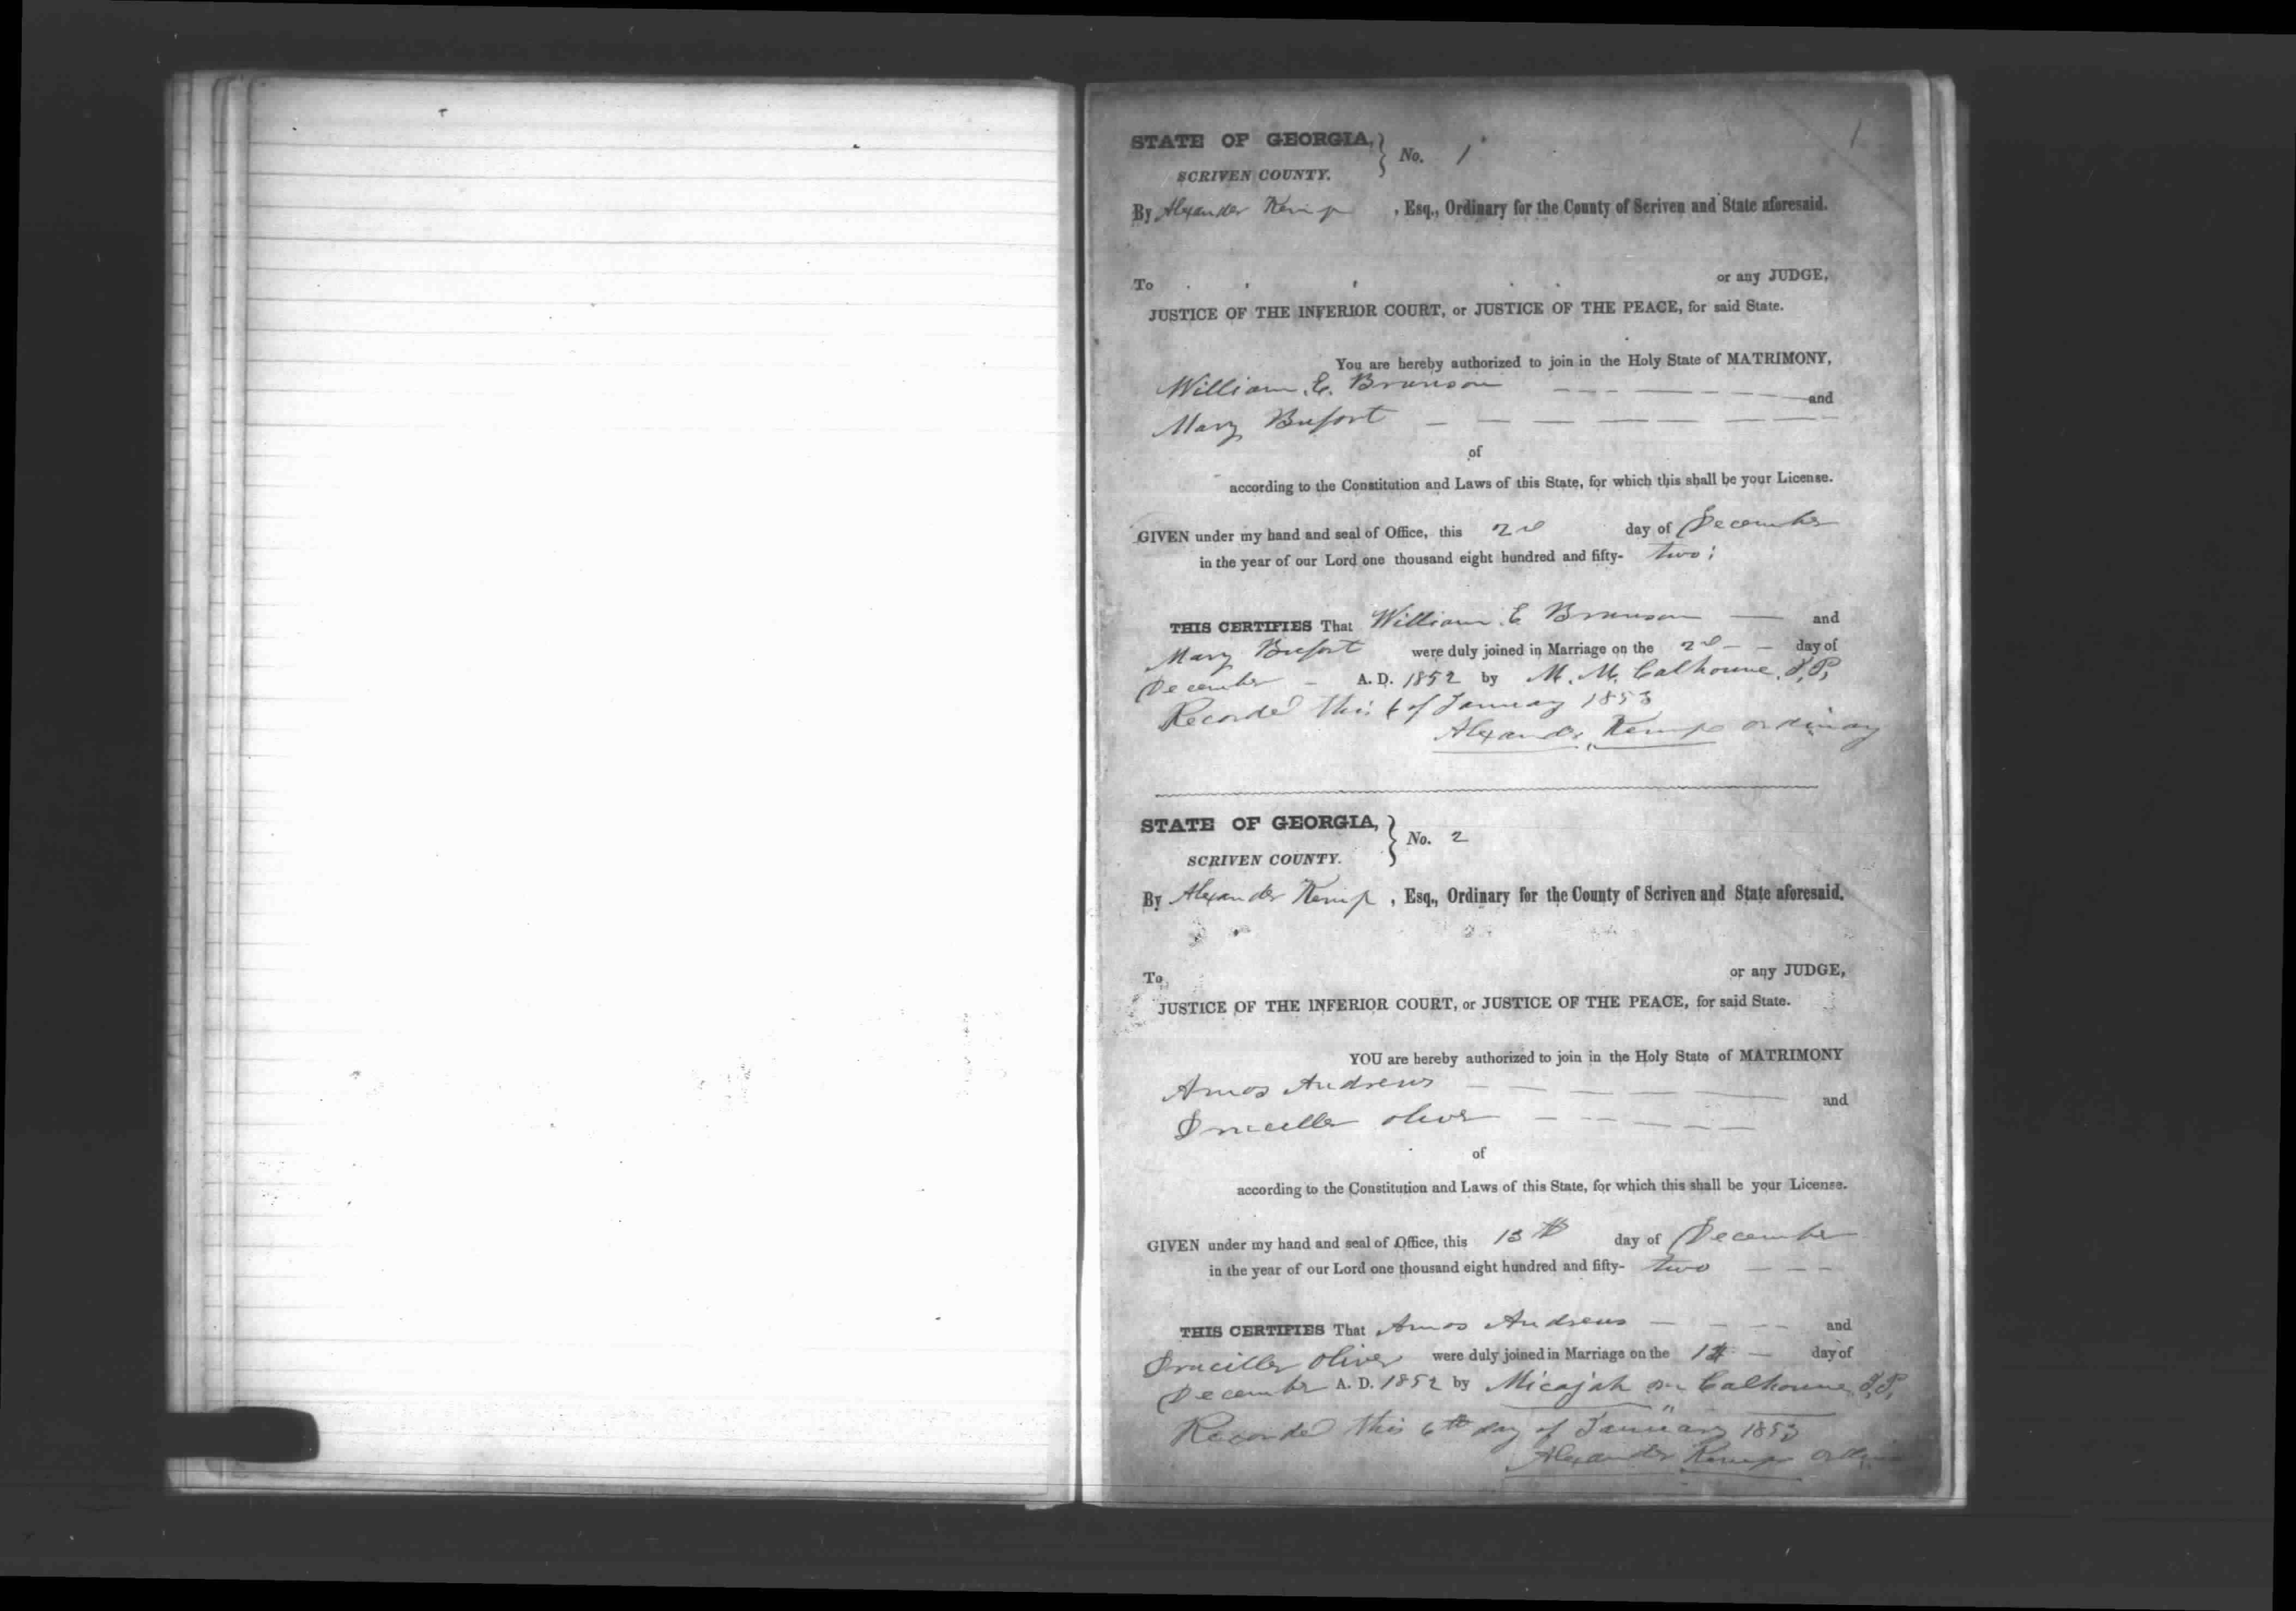 1
STATE OF GEORGIA, } No. 1
SCRIVEN COUNTY.
By Alexander Kemp , Esq., Ordinary for the County of Scriven and State aforesaid.
To or any JUDGE,
JUSTICE OF THE INFERIOR COURT, or JUSTICE OF THE PEACE, for said State.
You are hereby authorized to join in the Holy State of MATRIMONY,
William E. Brunson — — — — — — and
Mary Bufort — — — — — — —
of
according to the Constitution and Laws of this State, for which this shall be your License.
GIVEN under my hand and seal of Office, this 2nd day of December
in the year of our Lord one thousand eight hundred and fifty- two;
THIS CERTIFIES That William E Brunson — and
Mary Bufort were duly joined in Marriage on the 2nd — — day of
December — A. D. 1852 by M. M. Calhoune, J,P,
Recorded this 6 of January 1853
Alexander Kemp ordinary
STATE OF GEORGIA, } No. 2
SCRIVEN COUNTY.
By Alexander Kemp , Esq., Ordinary for the County of Scriven and State aforesaid.
To or any JUDGE,
JUSTICE OF THE INFERIOR COURT, or JUSTICE OF THE PEACE, for said State.
YOU are hereby authorized to join in the Holy State of MATRIMONY
Amos Andrews — — — — — — and
Druciller oliver — — — — —
of
according to the Constitution and Laws of this State, for which this shall be your License.
GIVEN under my hand and seal of Office, this 13th day of December
in the year of our Lord one thousand eight hundred and fifty- two — — —
THIS CERTIFIES That Amos Andrews — — — — and
Druciller oliver were duly joined in Marriage on the — day of
December A. D. 1852 by Micajah m Calhoune, J,P,
Recorded this 6th day of January 1853
Alexander Kemp